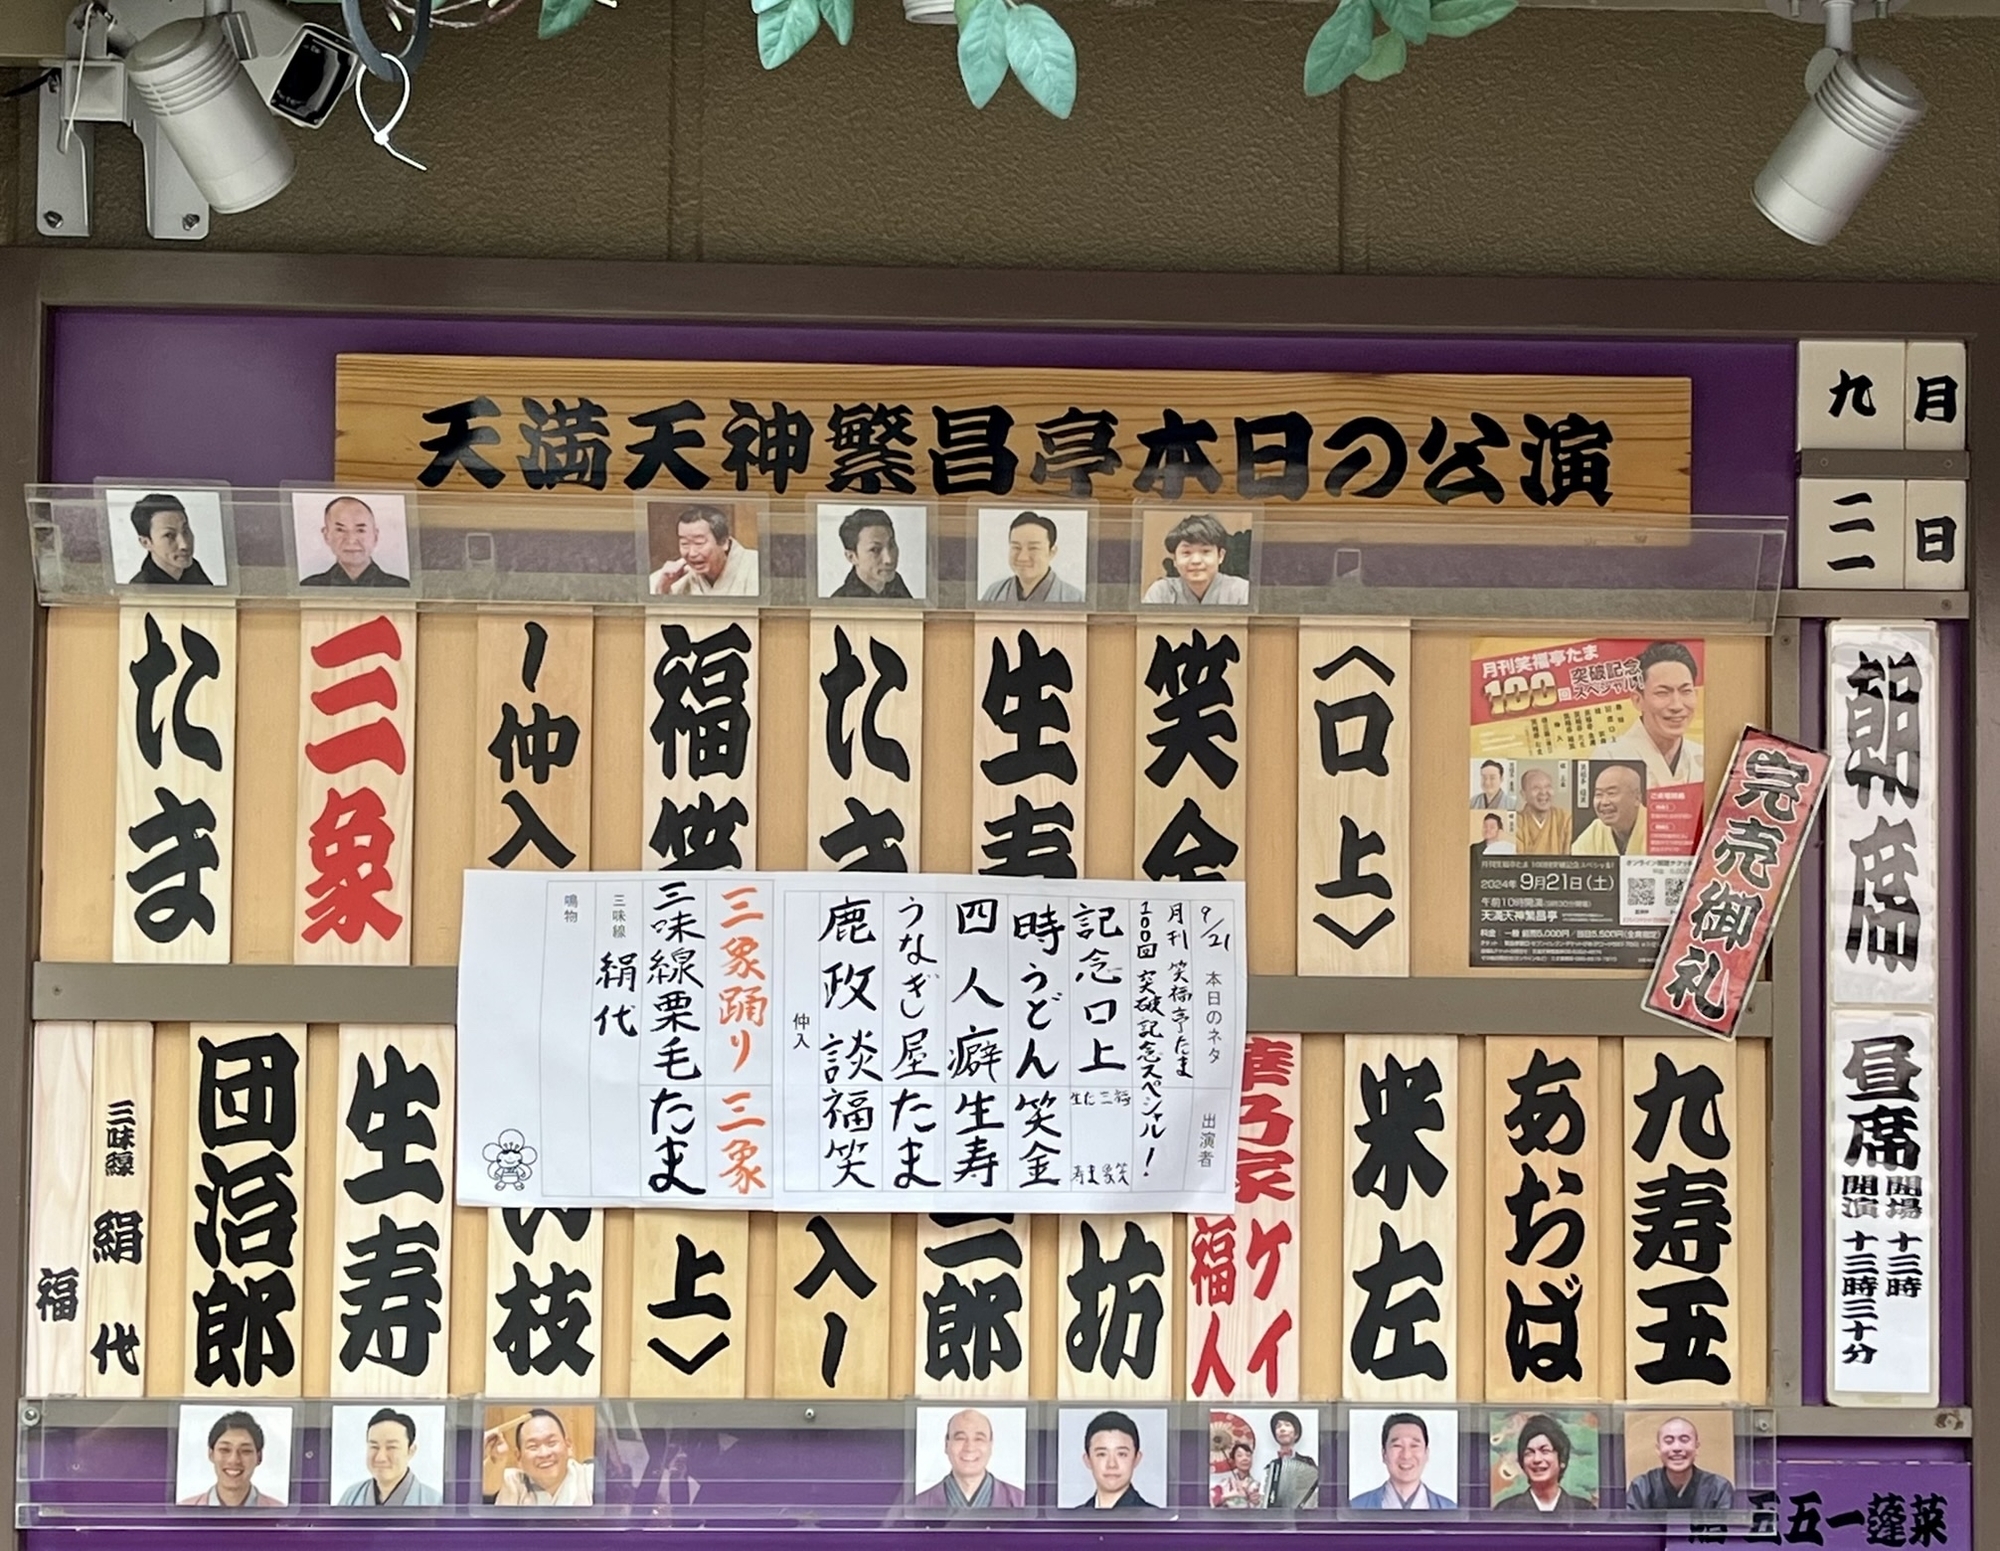 天満天神繁昌亭本日の公演
九月
二一日
朝席
〈口上〉
笑金
生寿
たま
福笑
ー仲入
三象
たま
月刊笑福亭たま
100回突破記念スペシャル!
2024年9月21日(土)
午前10時開演
天満天神繁昌亭
完売御礼
9/21 本日のネタ 出演者
月刊 笑福亭たま
100回 突破記念スペシャル!
記念口上 福笑 三象 たま 生寿
時うどん 笑金
四人癖 生寿
うなぎ屋 たま
鹿政談 福笑
仲入
三象踊り 三象
三味線栗毛 たま
三味線 絹代
鳴物
昼席
開場 十三時
開演 十三時三十分
九寿玉
あおば
米左
ケイ
福人
坊
三郎
入ー
上〉
枝
生寿
団治郎
三味線 絹代
福
五五一蓬莱